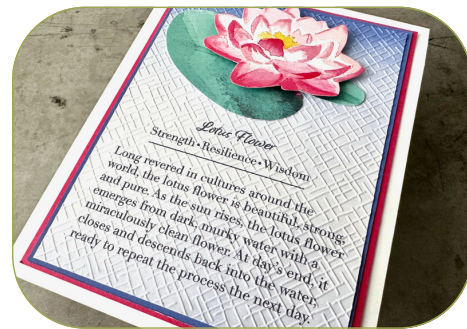 Lotus Flower
Strength•Resilience•Wisdom
Long revered in cultures around the
world, the lotus flower is beautiful, strong,
and pure. As the sun rises, the lotus flower
emerges from dark, murky water with a
miraculously clean flower. At day's end, it
closes and descends back into the water,
ready to repeat the process the next day.